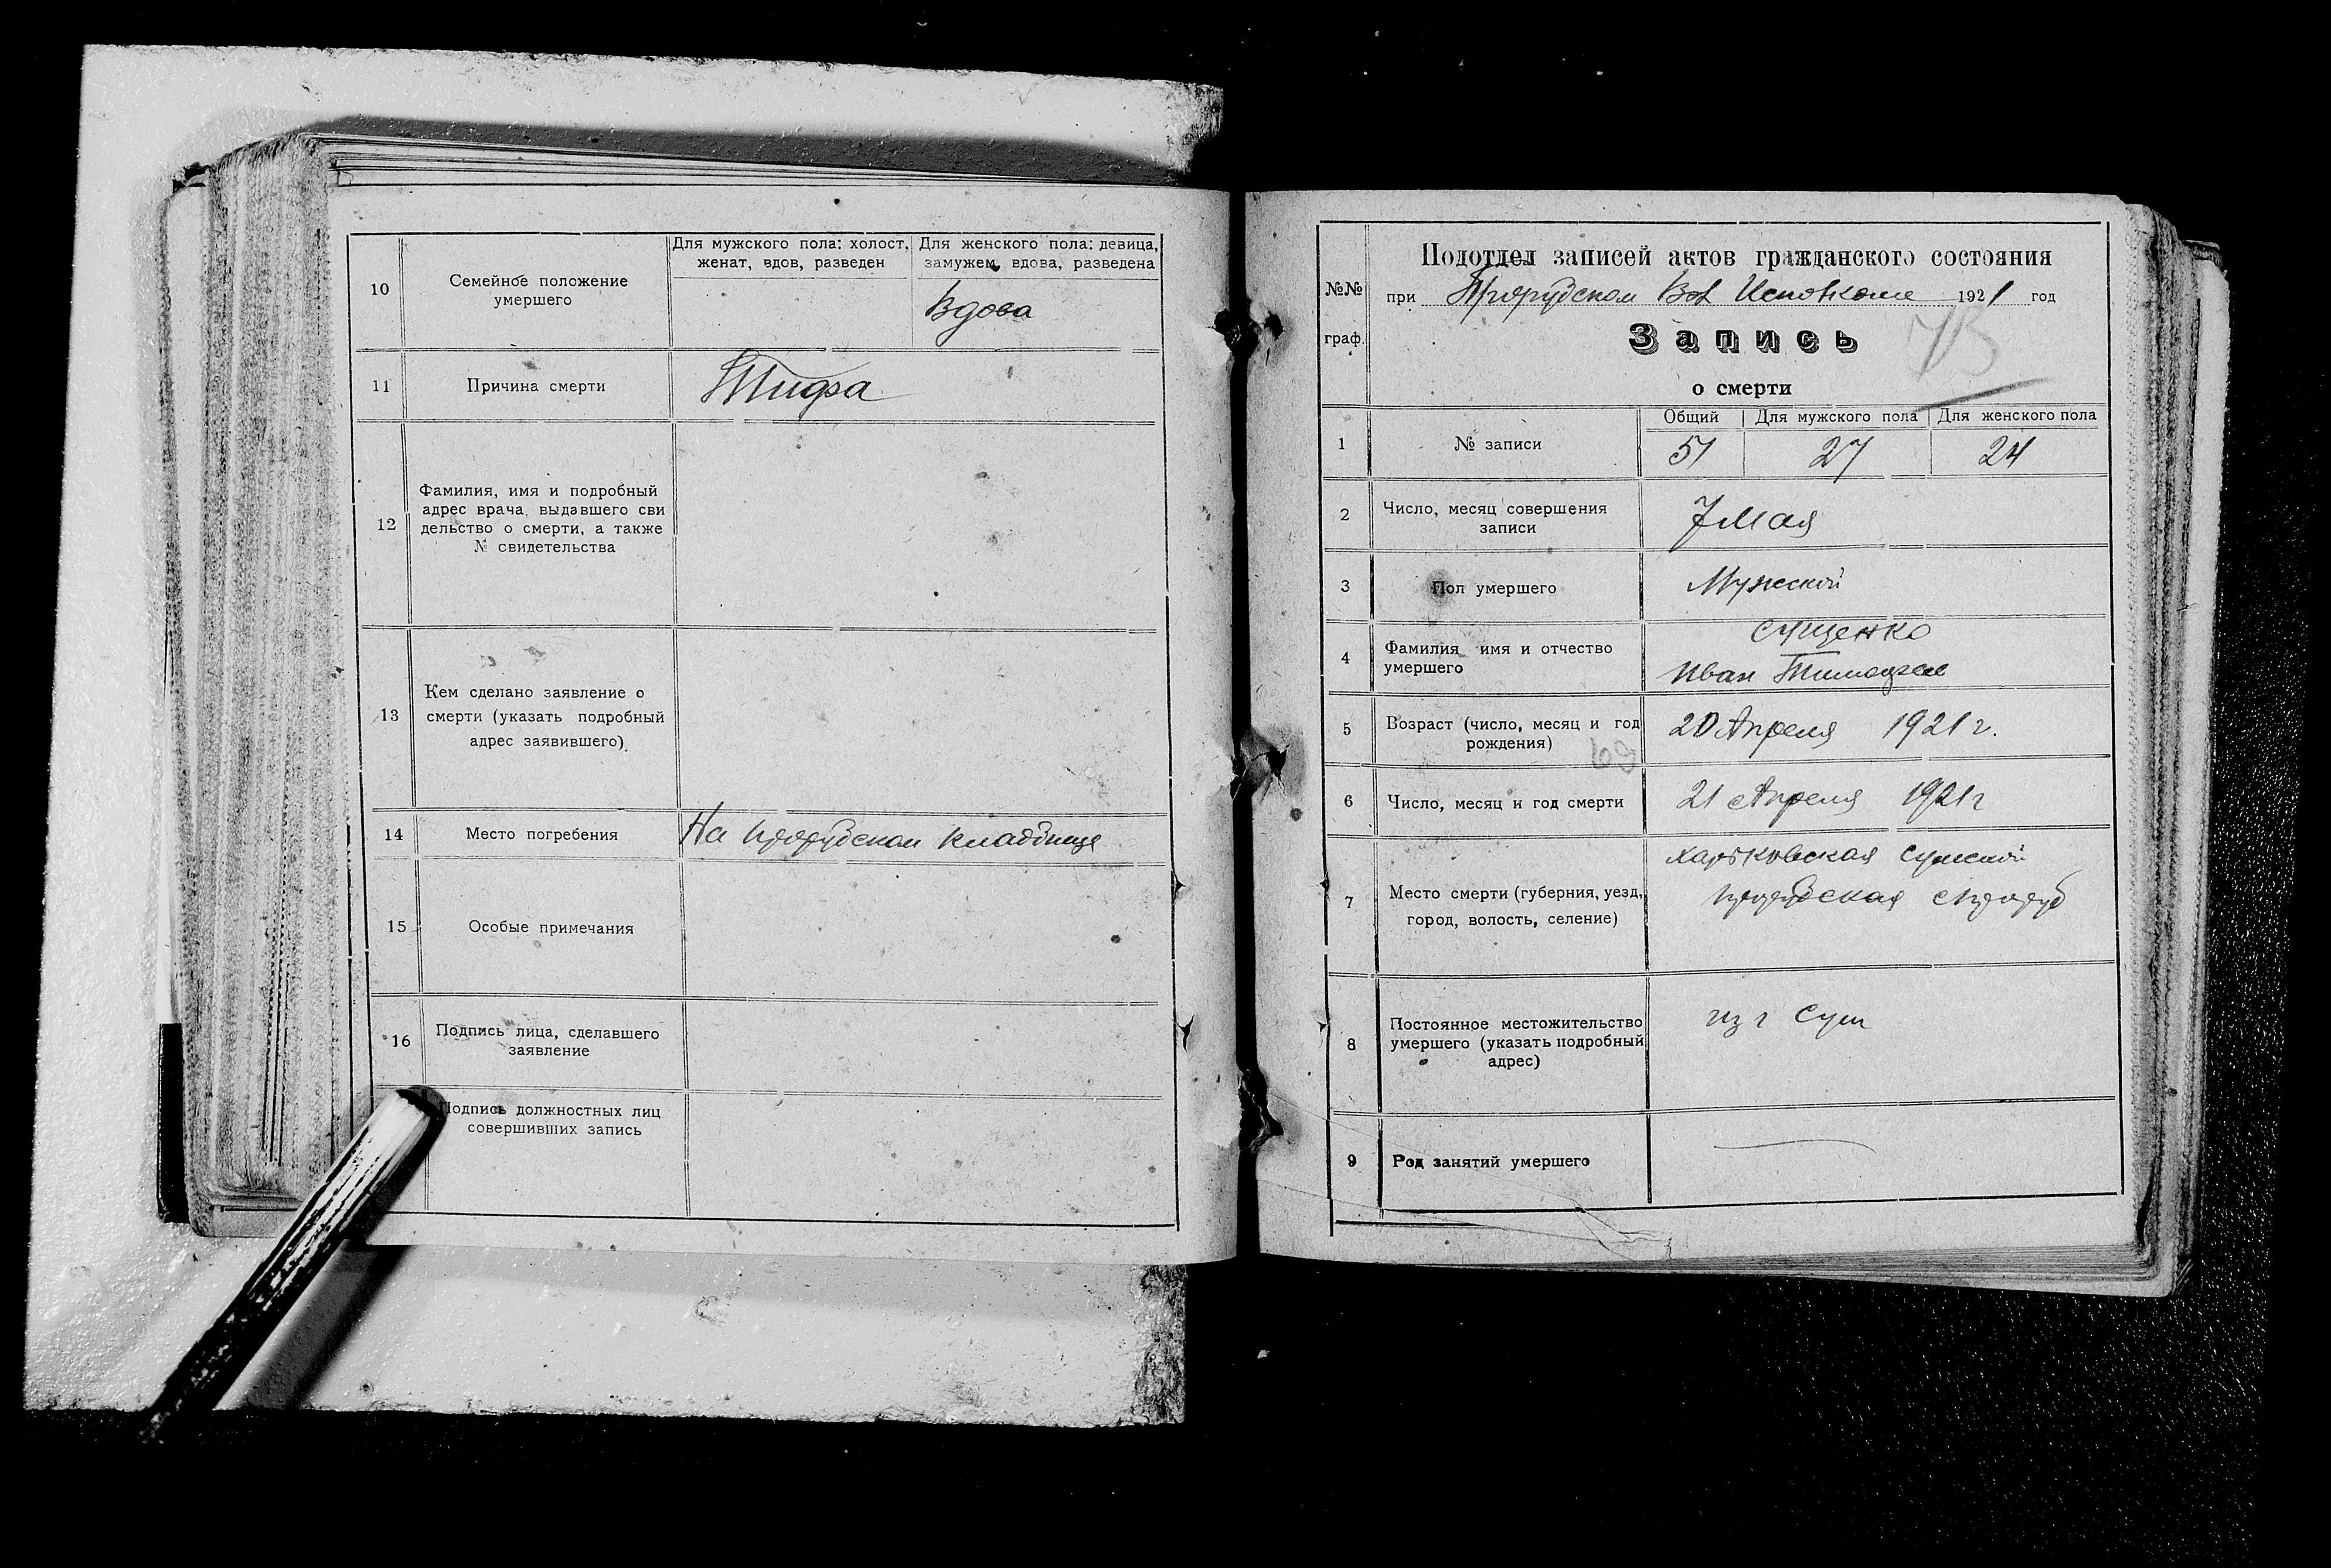 10
Семейное положение
умершего
Для мужского пола: холост,
женат, вдов, разведен
Для женского пола: девица,
замужем, вдова, разведена
Вдова
11
Причина смерти
Тифа
12
Фамилия, имя и подробный
адрес врача, выдавшего сви
дельство о смерти, а также
№ свидетельства
13
Кем сделано заявление о
смерти (указать подробный
адрес заявившего).
14
Место погребения
На прорубском кладбище
15
Особые примечания
16
Подпись лица, сделавшего
заявление
Подпись должностных лиц
совершивших запись
№№
граф.
Подотдел записей актов гражданского состояния
при Прорубском Вол Исполкоме 1921 год
Запись
о смерти
1
№ записи
Общий
Для мужского пола
Для женского пола
51
27
24
2
Число, месяц совершения
записи
7 Мая
3
Пол умершего
Мужской
4
Фамилия имя и отчество
умершего
Сущенко
Иван
5
Возраст (число, месяц и год
рождения)
20 Апреля 1921 г.
6
Число, месяц и год смерти
21 Апреля 1921 г
7
Место смерти (губерния, уезд,
город, волость, селение)
Харьковская Сумской
прорубская с Проруб
8
Постоянное местожительство
умершего (указать подробный
адрес)
из г Сум
9
Род занятий умершего